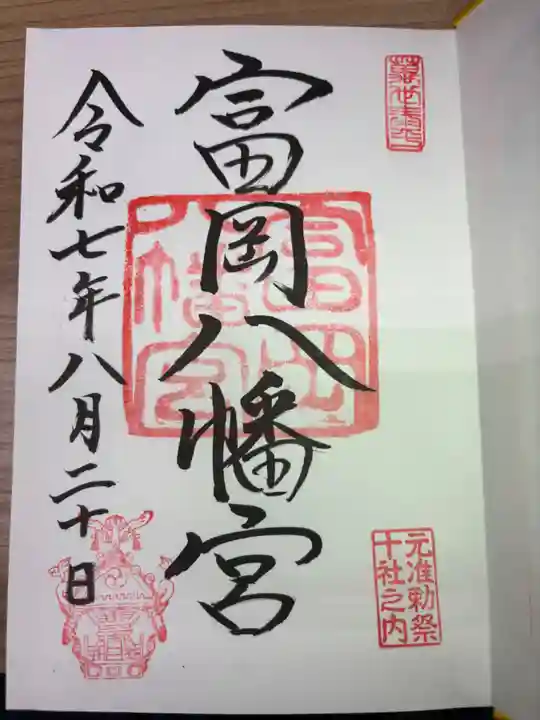 萬世泰平
富岡八幡宮
富岡八幡宮
元准勅祭
十社之内
令和七年八月二十日